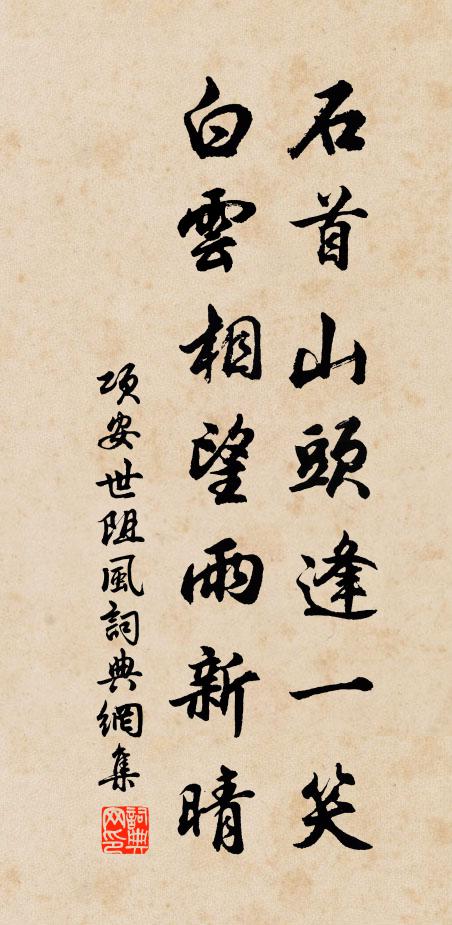 石首山頭逢一笑
白雲相望雨新晴
項安世阻風詞典網集
詞典网印